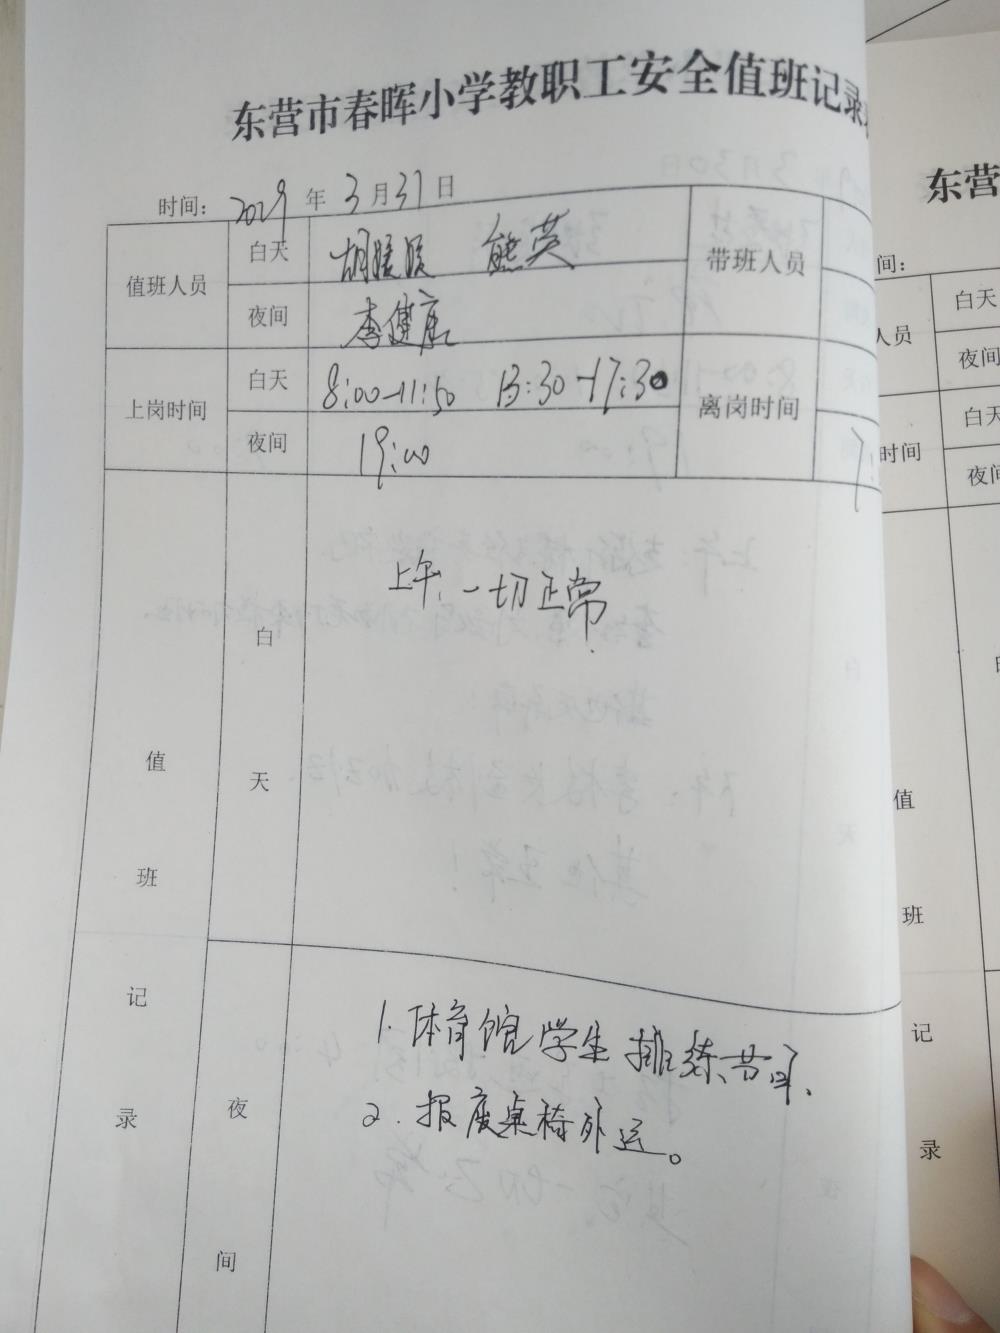 东营市春晖小学教职工安全值班记录
时间： 2019 年 3 月 31 日
值班人员 白天 熊英 带班人员
夜间 李健康
上岗时间 白天 8:00-11:50 13:30-17:30 离岗时间
夜间 19:00 7:
值班记录
白天
上午：一切正常
夜间
1.体育馆学生排练节目、
2.报废桌椅外运。
东营
间：
人员 白天
夜间
时间 白天
夜间
值
班
记
录